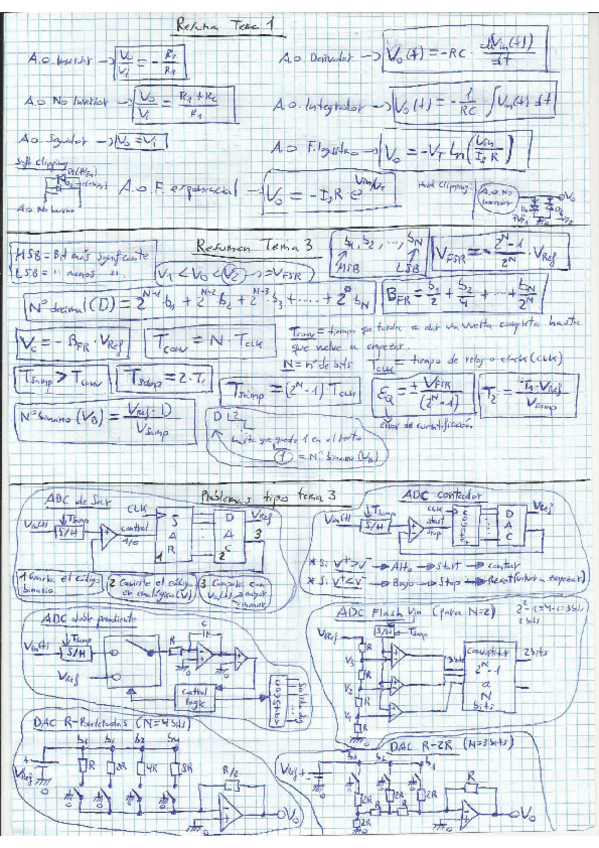 Resumen Tema 1
A.O. Inversor → Vo/Vi = - R2/R1
A.O. Derivador → Vo(t) = -RC · dVin(t)/dt
A.O. No Inversor → Vo/Vi = R1+R2/R1
A.O. Integrador → Vo(t) = -1/RC ∫Vin(t) dt
A.O. Seguidor → Vo = Vi
A.O. F. logarit → Vo = -VT Ln(Vin/Is R)
Soft Clipping:
A.O. No Inversor
A.O. F. exponencial → Vo = -Is R e^Vin/VT
Hard Clipping:
A.O. No Inversor
Vo
Resumen Tema 3
MSB = Bit más significante
LSB = " menos "
V1 < Vo < V2 → = VFSR
b1, b2, ..., bN
MSB LSB
VFSR = - 2^N-1/2^N · VRef
Nº decimal (D) = 2^N-1 · b1 + 2^N-2 · b2 + 2^N-3 · b3 + ..... + 2^0 bN
BFR = b1/2 + b2/4 + ... + bN/2^N
Vo = -BFR · VRef
Tconv = N · TCLK
Tconv = tiempo que tarda a dar un vuelta completa hasta
que vuelve a empezar.
N = nº de bits
TCLK = tiempo de reloj o clock (CLK)
Tsamp > Tconv
Tsamp = 2·T1
Tsamp = (2^N-1) TCLK
EQ = ± VFSR/(2^N-1)
T2 = -T1·VRef/Vsamp
error de cuantificación
Nº binario (VB) = VRef · D/Vsamp
D |2
hasta que quede 1 en el resto
1 = Nº binario (VB)
Problemas tipo tema 3
ADC de Sar
CLK
VRef
Vin(t)
Tsamp
S/H
control
1/0
S A R
1
D A C
2
3
1 Genera el código
binario
2 Convierte el código
en analógico (V)
3 Compara con
Vin(t)
ADC contador
CLK
VRef
Vin(t)
Tsamp
S/H
start
stop
D A C
* Si V+ > V- → Alto → Start → contar
* Si V+ < V- → Bajo → Stop → Reset (volver a empezar)
ADC doble pendiente
Vin(t)
Tsamp
S/H
VRef
R
C
control
logic
Salida
ADC Flash Vin (para N=2)
2²-1=4-1=3bits
2 bits
VRef
S/H
Tsamp
R
V3
R
V2
R
V1
R
3bits
Convertidor
2^N-1
a
N
bits
2bits
DAC R-Ponderadas (N=4 bits)
b1 b2 b3 b4
VRef
R 2R 4R 8R
R/2
Vo
DAC R-2R (N=3bits)
b3 b2 b1
VRef
2R 2R 2R
R
2R R R
Vo